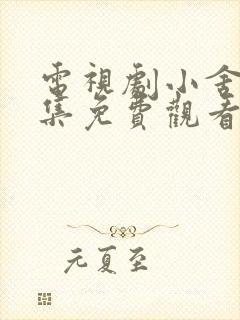 電視劇小舍
集免費觀看
元夏至